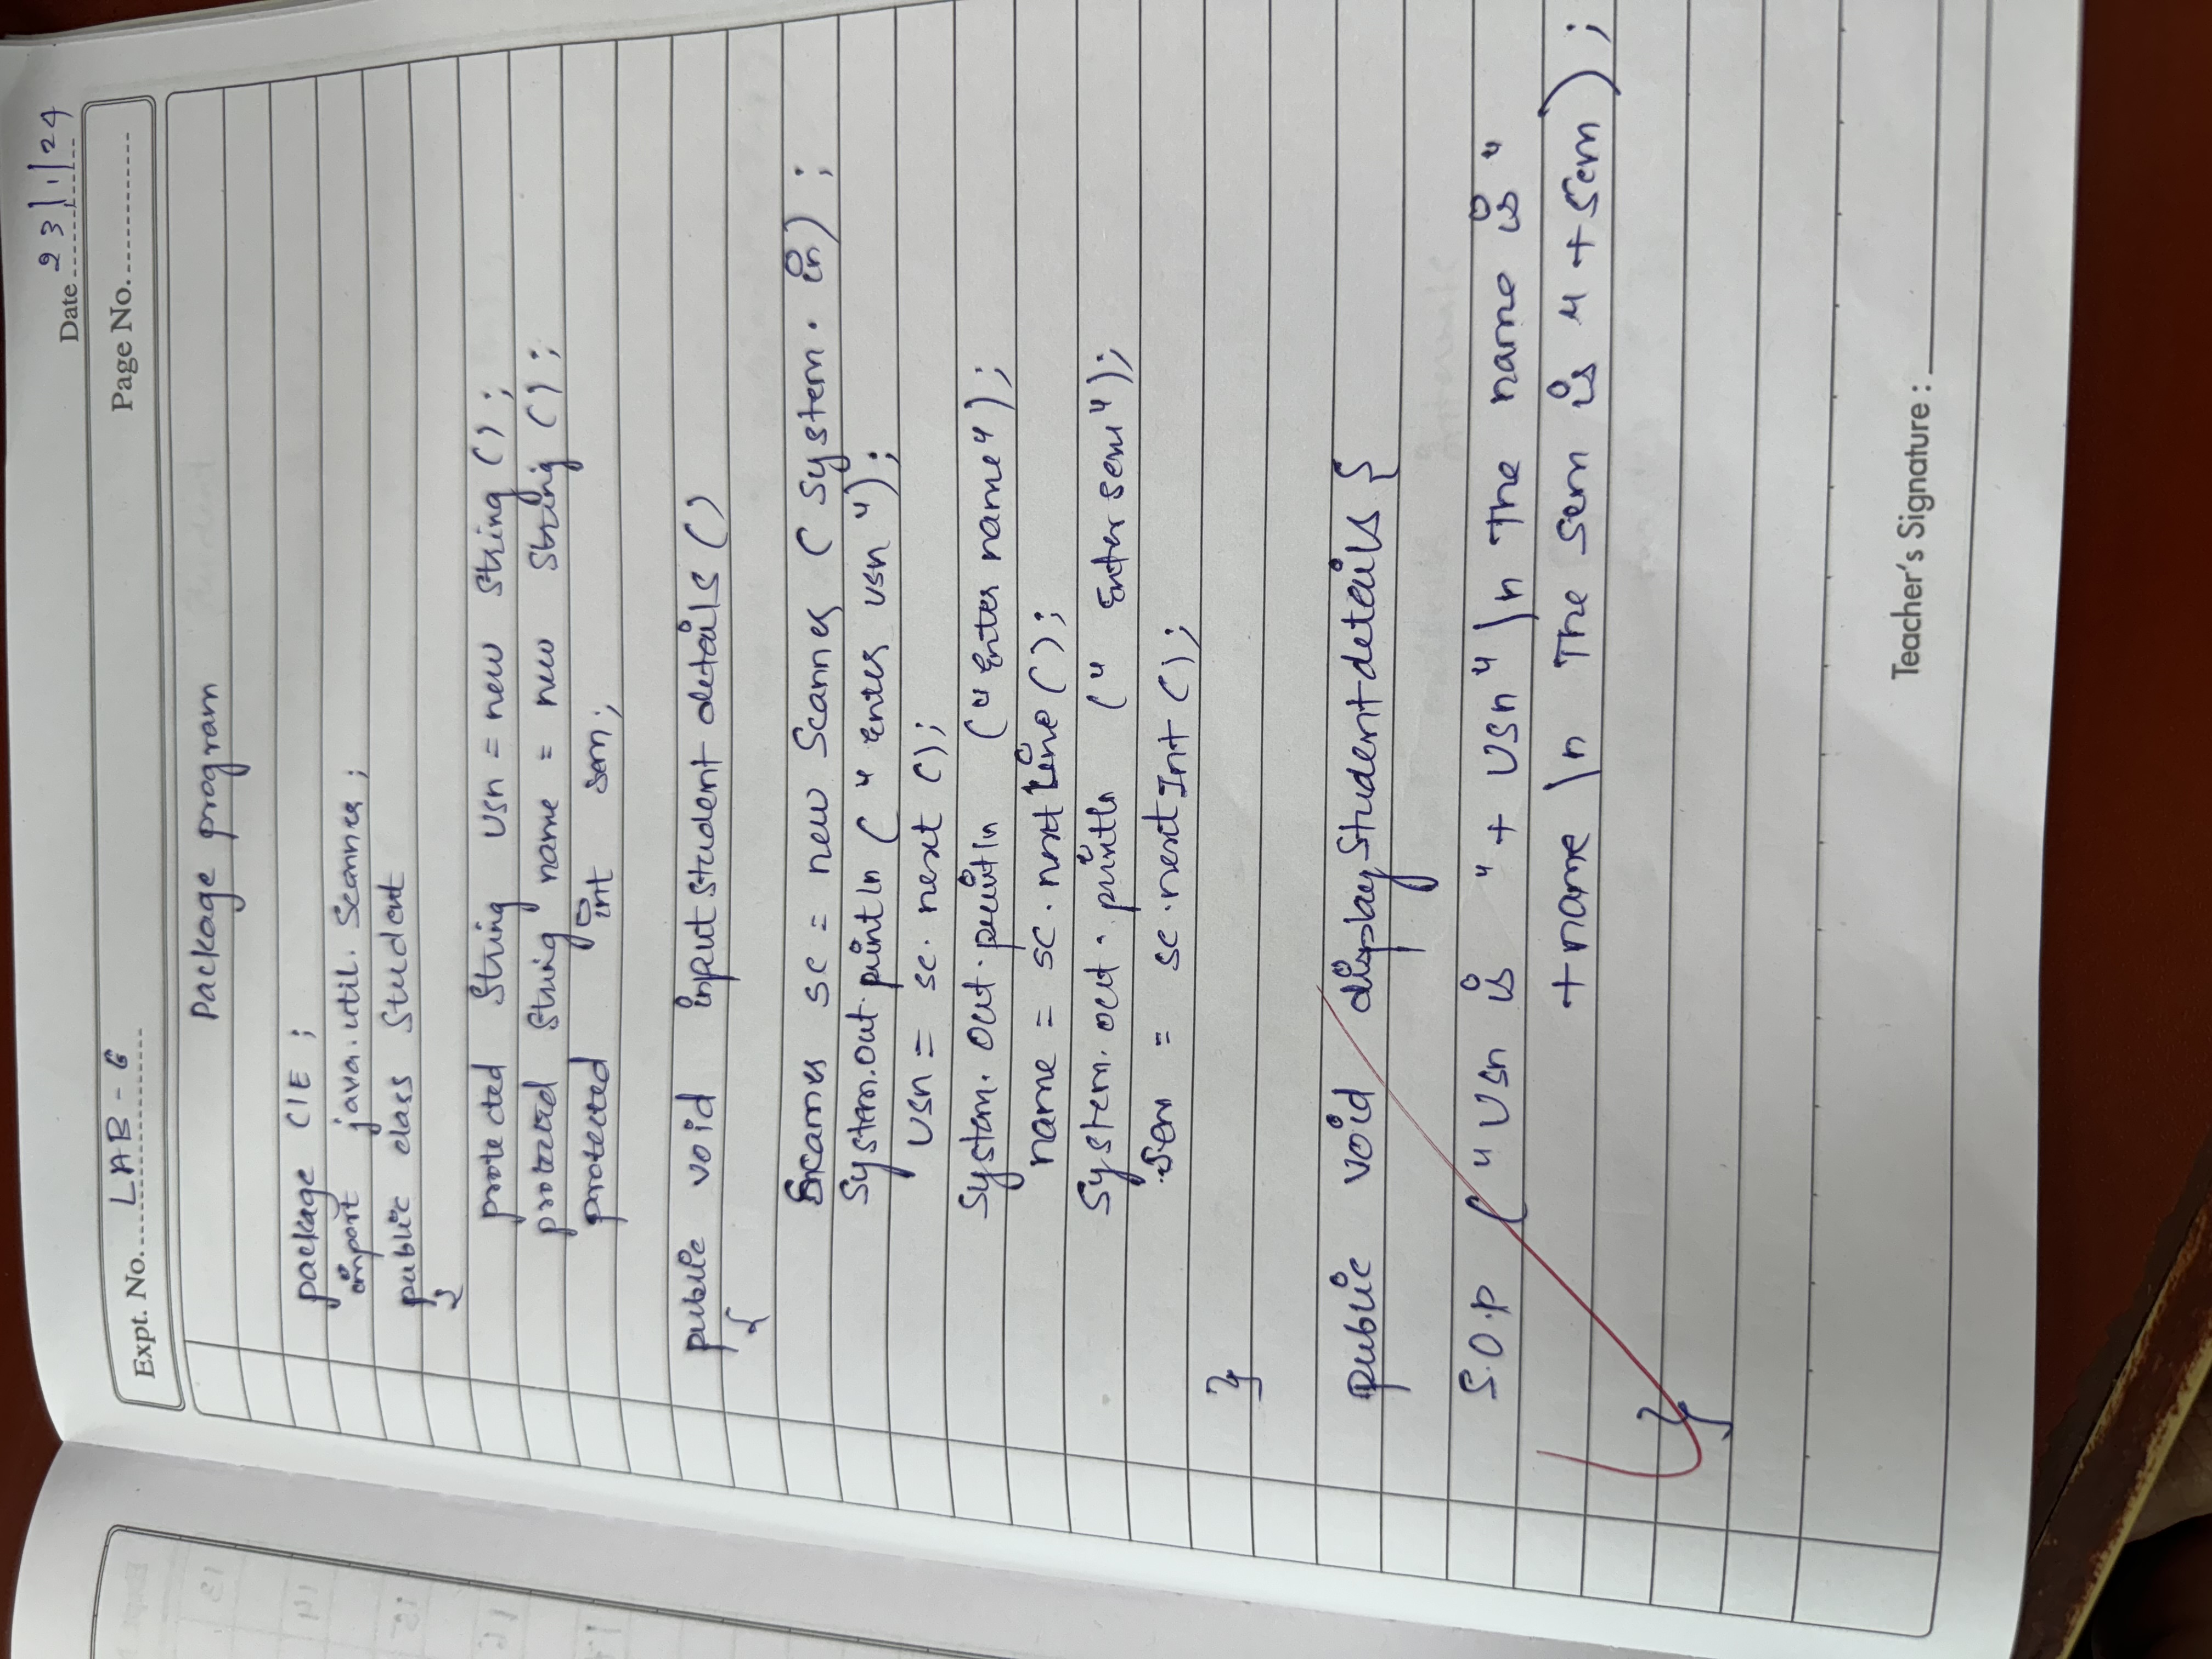 Date 23/1/24
Expt. No. LAB - 6
Page No.
Package program
package CIE ;
import java.util. Scanner ;
public class Student
{
protected String usn = new String () ;
protected String name = new String () ;
protected int sem ;
public void inputStudent details ()
{
Scanner sc = new Scanner ( System . in ) ;
System.out.println ( " Enter usn " ) ;
usn = sc. next () ;
System. out . println ( " Enter name " ) ;
name = sc . next Line () ;
System. out . println ( " Enter sem " ) ;
Sem = sc .next Int () ;
}
public void displayStudentdetails {
S.O.P ( " Usn is " + Usn " \n The name is "
+name \n The Sem is " + Sem ) ;
}
Teacher's Signature :